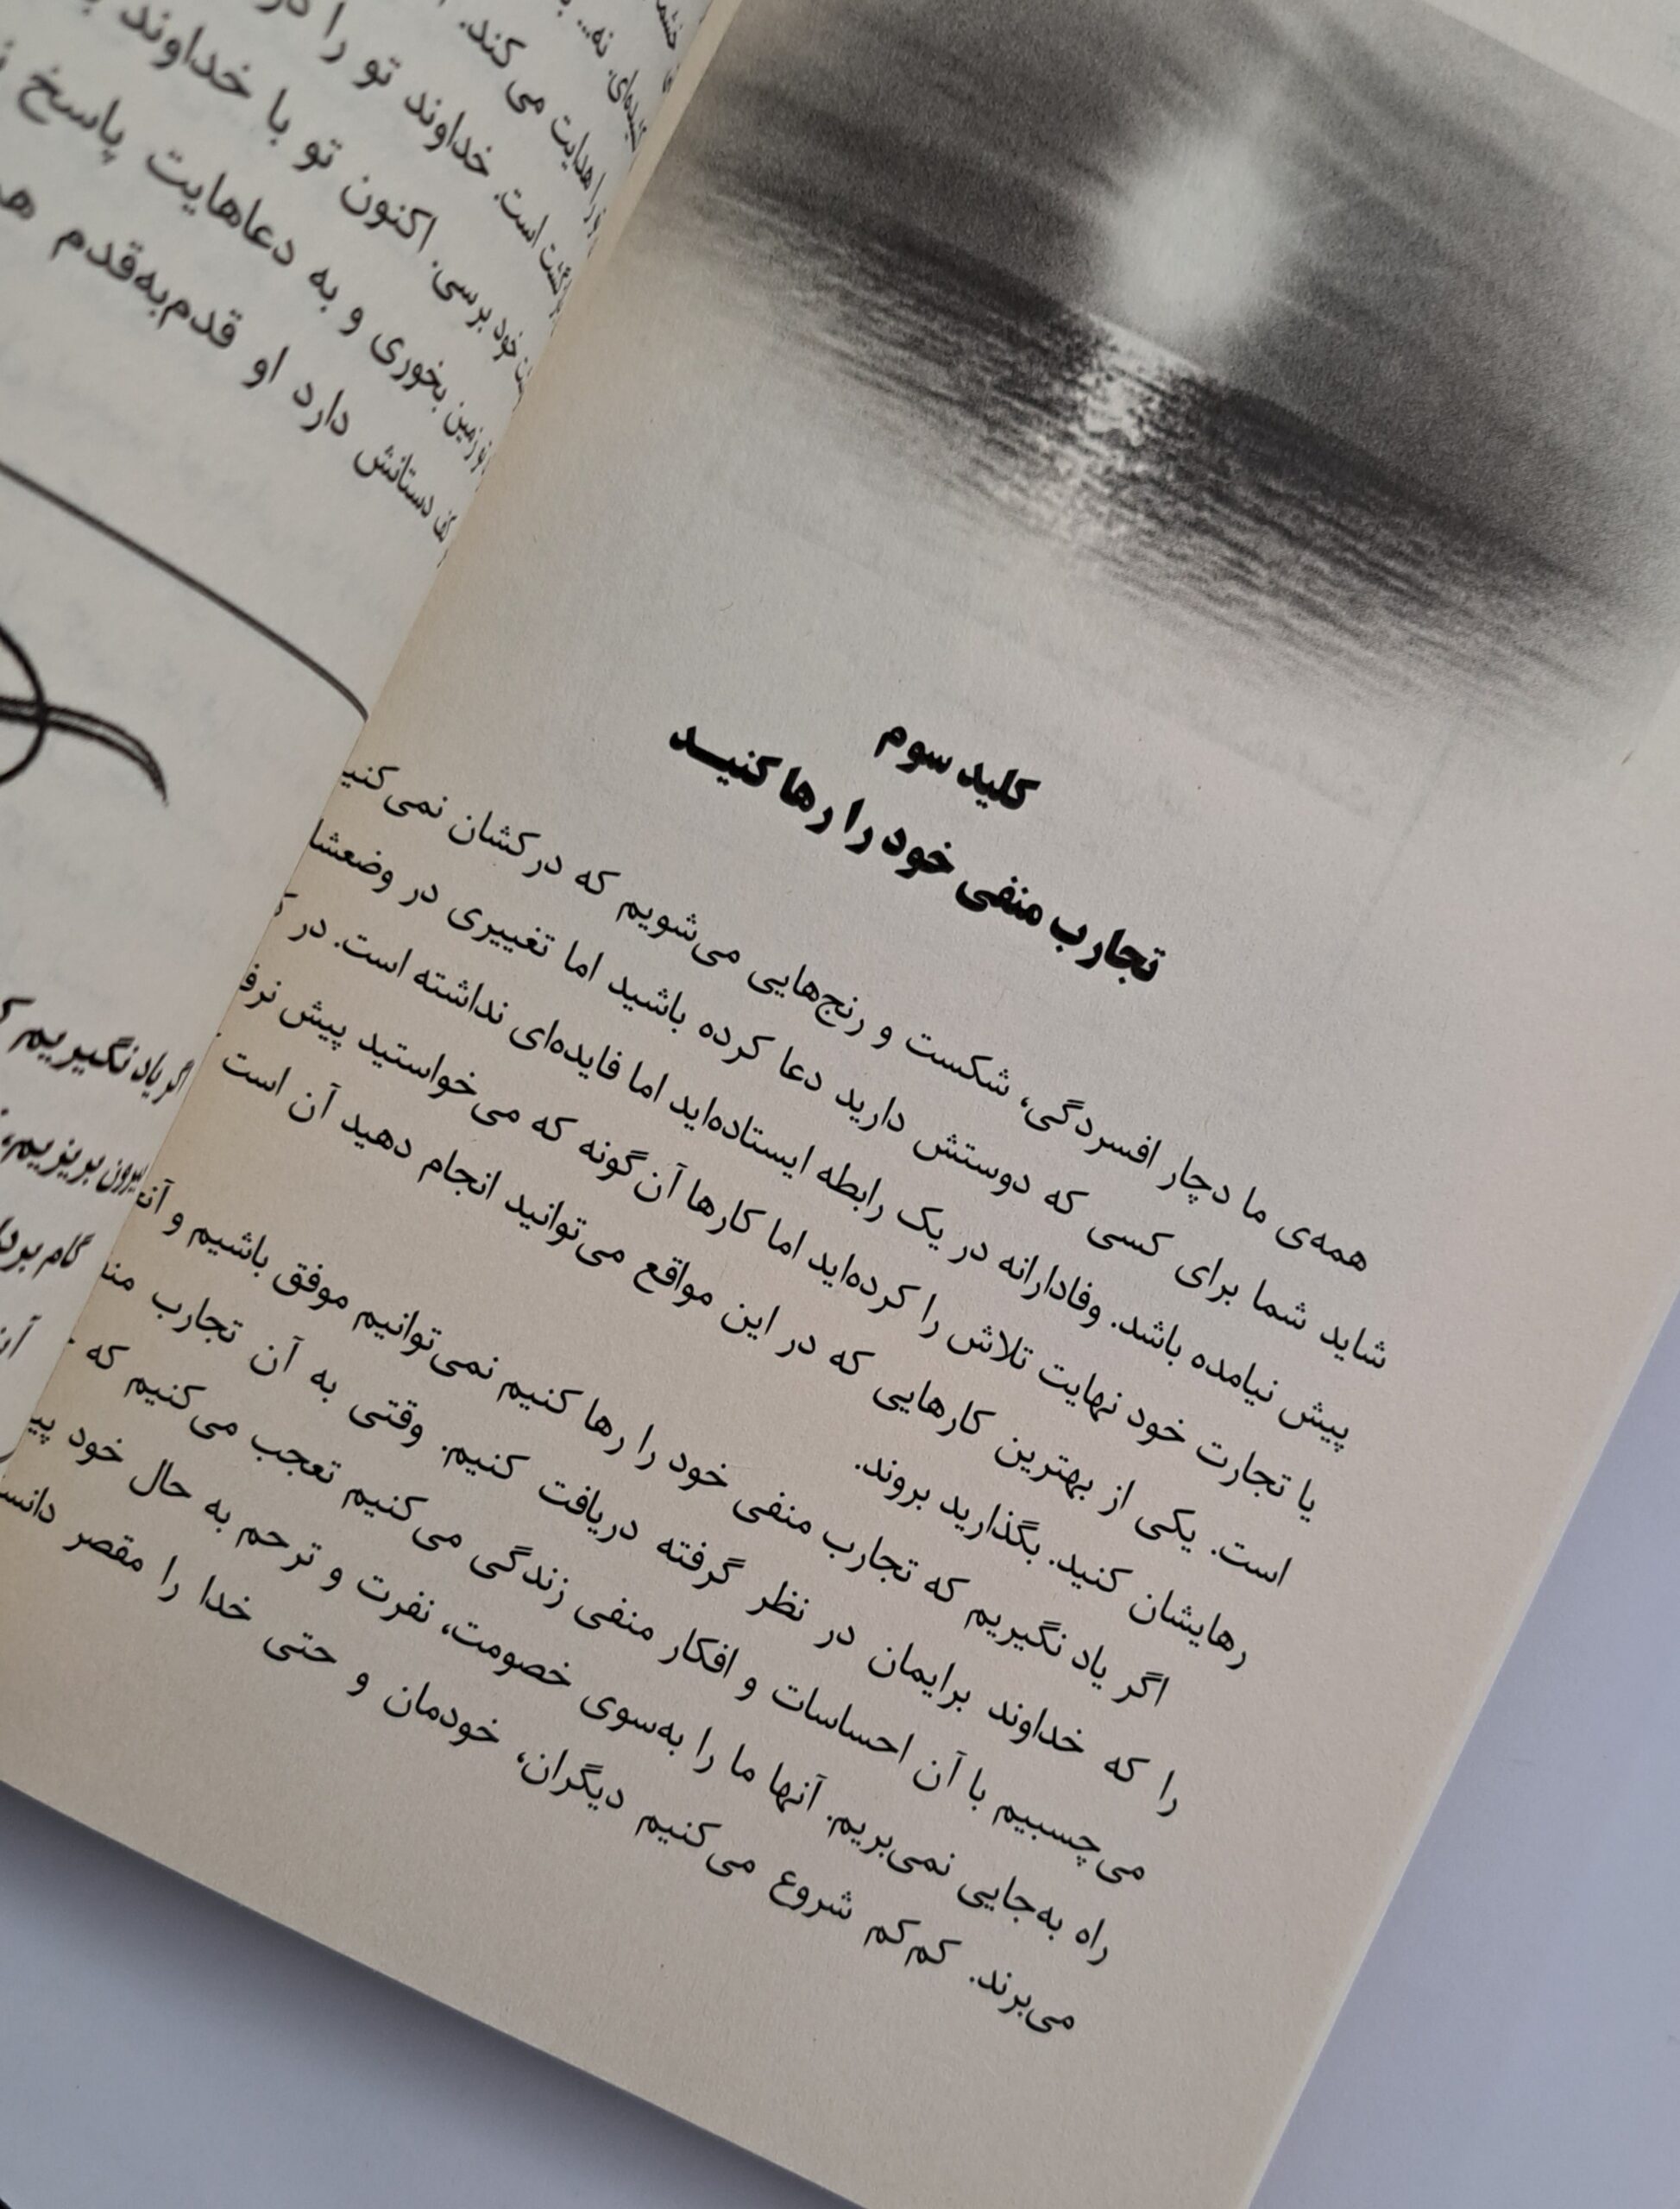 کلید سوم
تجارب منفی خود را رها کنید
همه‌ی ما دچار افسردگی، شکست و رنج‌هایی می‌شویم که درکشان
شاید شما برای کسی که دوستش دارید دعا کرده باشید اما تغییری در
پیش نیامده باشد. وفادارانه در یک رابطه ایستاده‌اید اما فایده‌ای نداشته است. در
یا تجارت خود نهایت تلاش را کرده‌اید اما کارها آن‌گونه که می‌خواستید پیش
است. یکی از بهترین کارهایی که در این مواقع می‌توانید انجام دهید آن است
رهایشان کنید. بگذارید بروند.
اگر یاد نگیریم که تجارب منفی خود را رها کنیم نمی‌توانیم موفق باشیم و
را که خداوند برایمان در نظر گرفته دریافت کنیم. وقتی به آن تجارب
می‌چسبیم با آن احساسات و افکار منفی زندگی می‌کنیم تعجب می‌کنیم که
راه به‌جایی نمی‌بریم. آنها ما را به‌سوی خصومت، نفرت و ترحم به حال خود
می‌برند. کم‌کم شروع می‌کنیم دیگران، خودمان و حتی خدا را مقصر
هدایت می کند.
است. خداوند تو را
خود برسی. اکنون تو با خداوند
زمین بخوری و به دعاهایت پاسخ
دستانش دارد او قدم‌به‌قدم
اگر یاد نگیریم
بیرون بریزیم،
گام